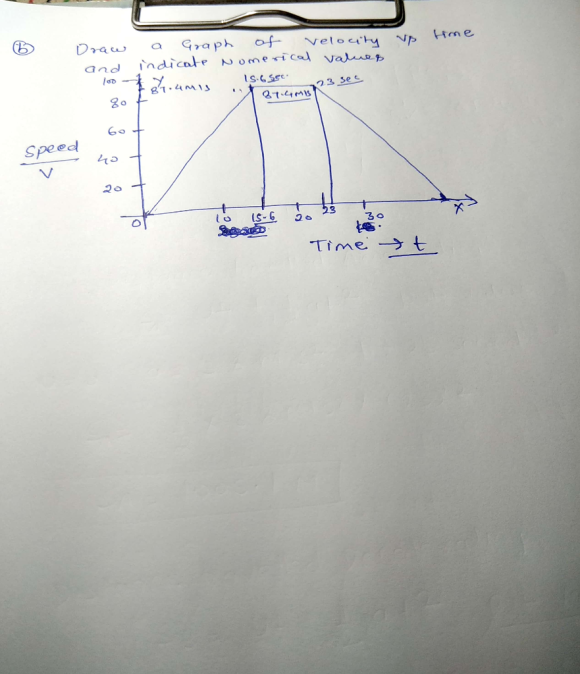 b
Draw a Graph of velocity vs time
and indicate Numerical values
100 Y
87.4 M/S
15.6 sec
23 sec
87.4 M/S
80
60
Speed
V
40
20
0
10 15.6 20 23 30
X
Time → t